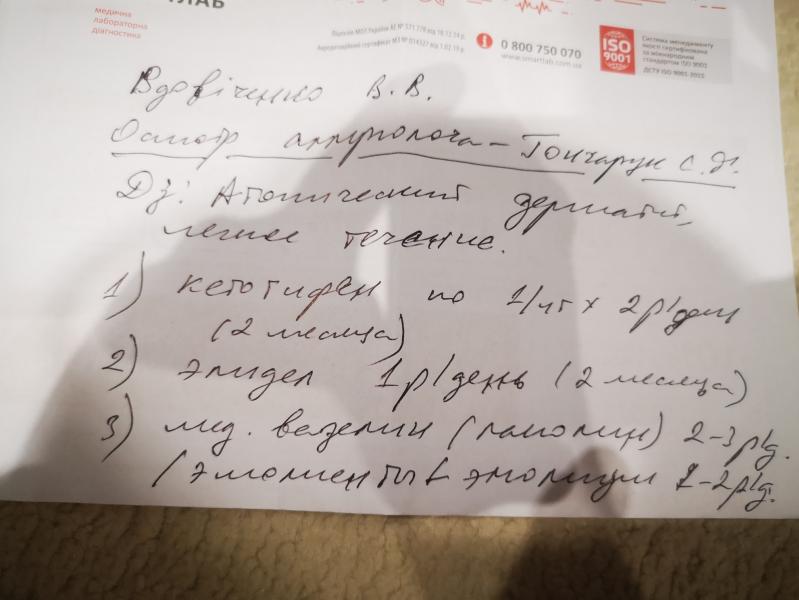 ЛАБ
медична
лабораторна
діагностика
Ліцензія МОЗ України АЕ № 571 778 від 18.12.14 р.
0 800 750 070
www.smartlab.com.ua
ISO
9001
Система менеджменту
якості сертифікована
за міжнародним
стандартом ISO 9001
ДСТУ ISO 9001:2015
Вдовіченко В.В.
Осмотр аллерголога - Гончарук С.Ф.
Дз: Атопический дерматит,
легкое течение.
1) кетотифен по 1/чт x 2р/день
(2 месяца)
2) элидел 1р/день (2 месяца)
3) мед. вазелин (ланолин) 2-3р/д.
1-2р/д.